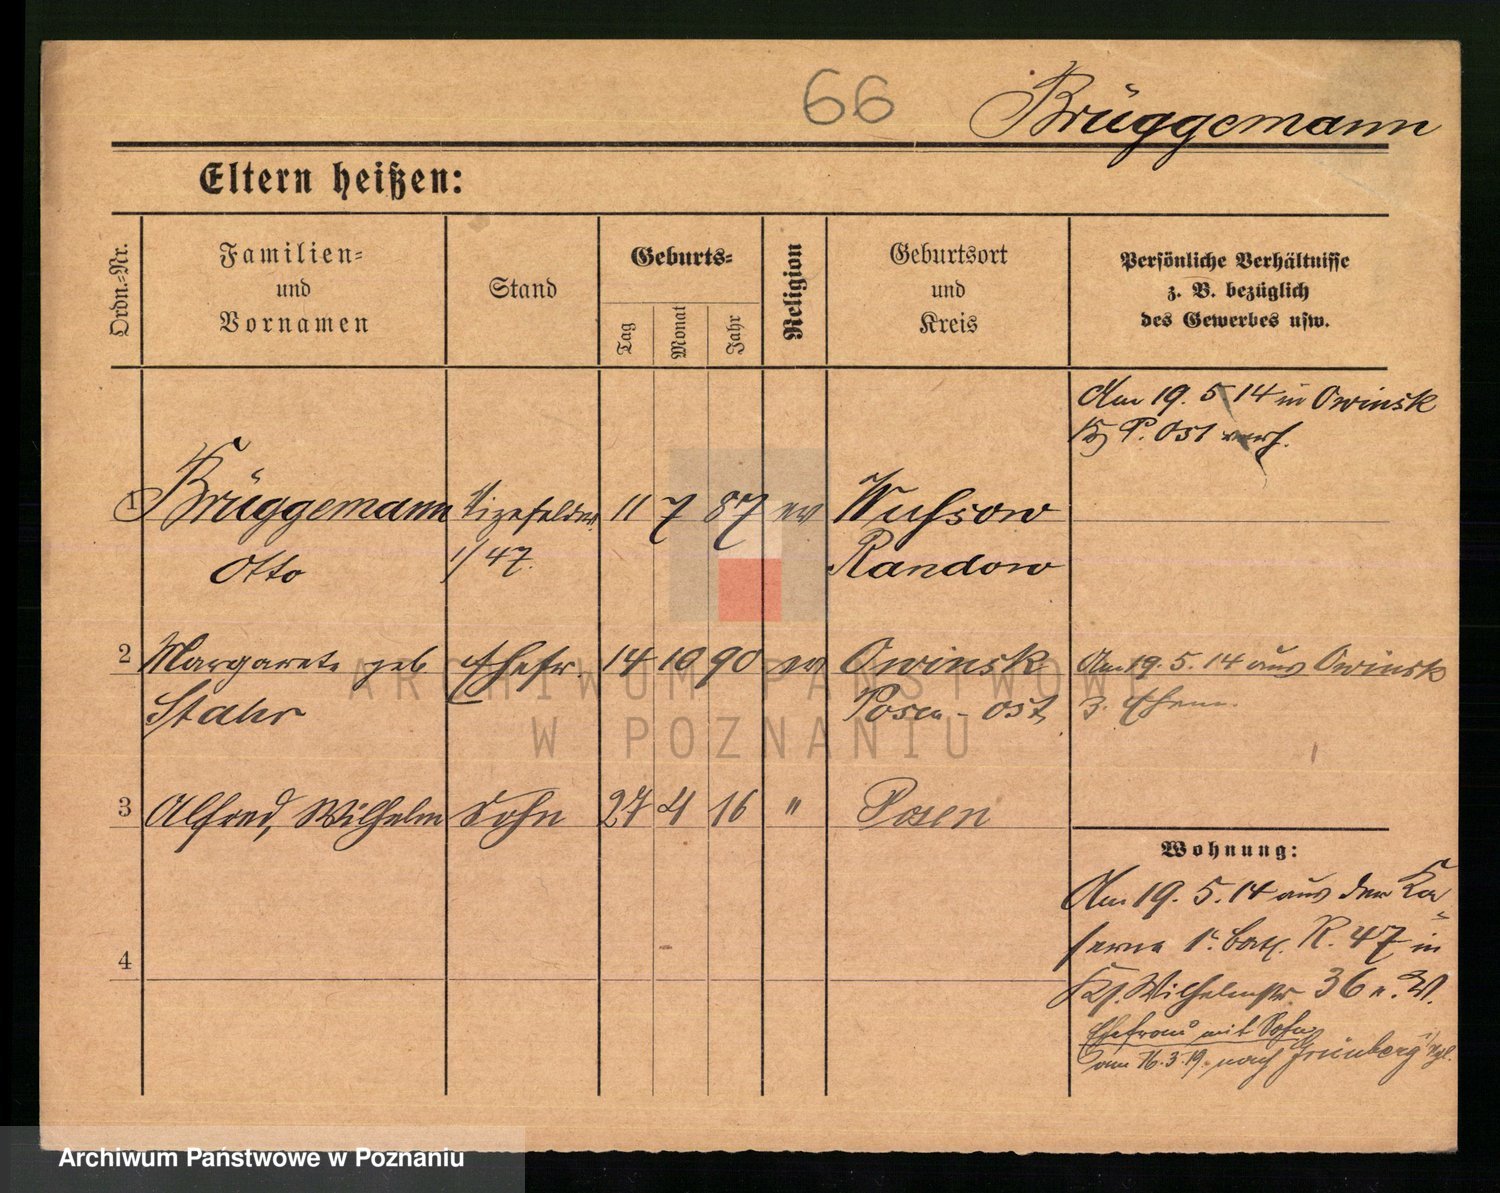 66
Brüggemann
Eltern heißen:
Ordn.-Nr.
Familien-
und
Vornamen
Stand
Geburts-
Tag
Monat
Jahr
Religion
Geburtsort
und
Kreis
Persönliche Verhältnisse
z. B. bezüglich
des Gewerbes usw.
Am 19. 5 14 in Owinsk
P. Ost verh.
1 Brüggemann Vizefeldw. 11 7 87 ev Wussow
Otto 1/47. Randow
2 Margarete geb. Ehefr. 14 10 90 ev Owinsk Am 19. 5. 14 aus Owinsk
Stahr Posen - Ost z. Ehem.
3 Alfred, Wilhelm Sohn 27 4 16 " Posen
Wohnung:
Am 19. 5. 14 aus der Ka
serne 1. Batl. R. 47 in
Wilhelmstr. 36 n. W.
4
Ehefrau mit Sohn
am 16.3.19. nach Grünberg
ARCHIWUM PAŃSTWOWE
W POZNANIU
Archiwum Państwowe w Poznaniu